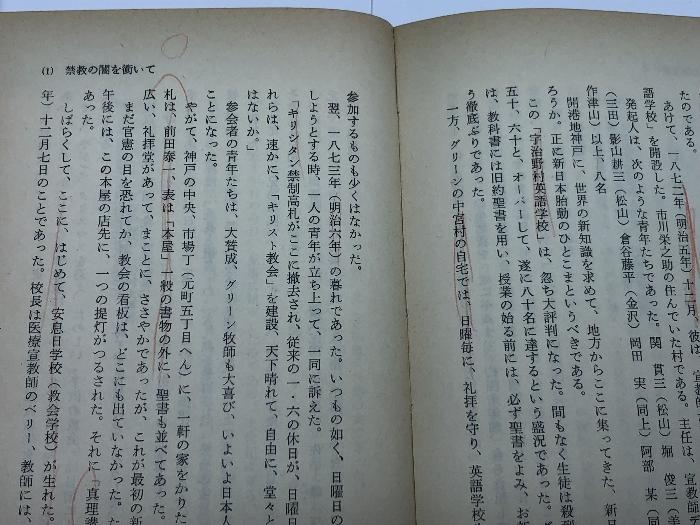 たのである。
あけて、一八七二年（明治五年）十二月、彼は、宣教師
語学校」を開設した。市川栄之助の住んでいた村である。主任は、宣教師で
発起人は、次のような青年たちであった。関　貫三（松山）堀　俊三（美
（三田）影山耕三（松山）倉谷藤平（金沢）岡田　実（同上）阿部　某（同
作津山）以上、八名
開港地神戸に、世界の新知識を求めて、地方からここに集ってきた、新日
ろうか。正に新日本胎動のひとこまというべきである。
この「宇治野村英語学校」は、忽ち大評判になった。間もなく生徒は殺到
五十、六十と、オーバーして、遂に八十名に達するという盛況であった。グ
は、教科書には旧約聖書を用い、授業の始る前には、必ず聖書をよみ、お祈
う徹底ぶりであった。
一方、グリーンの中宮村の自宅では、日曜毎に、礼拝を守り、英語学校
参加するものも少くはなかった。
翌、一八七三年（明治六年）の暮れであった。いつもの如く、日曜日の
しようとする時、一人の青年が立ち上って、一同に訴えた。
「キリシタン禁制高札がここに撤去され、従来の一・六の休日が、日曜日
れらは、速かに、「キリスト教会」を建設、天下晴れて、自由に、堂々と
はないか。」
参会者の青年たちは、大賛成、グリーン牧師も大喜び、いよいよ日本人
ことになった。
やがて、神戸の中央、市場丁（元町五丁目へん）に、一軒の家をかりた
札は、前田泰一、表は「本屋」一般の書物の外に、聖書も並べてあった。
広い、礼拝堂があって、まことに、ささやかであったが、これが最初の新
まだ官憲の目を恐れてか、教会の看板は、どこにも出ていなかった。た
午後には、この本屋の店先に、一つの提灯がつるされた。それに「真理講
あった。
しばらくして、ここに、はじめて、安息日学校（教会学校）が生れた。
年）十二月七日のことであった。校長は医療宣教師のベリー、教師には、
(1)　禁教の闇を衝いて